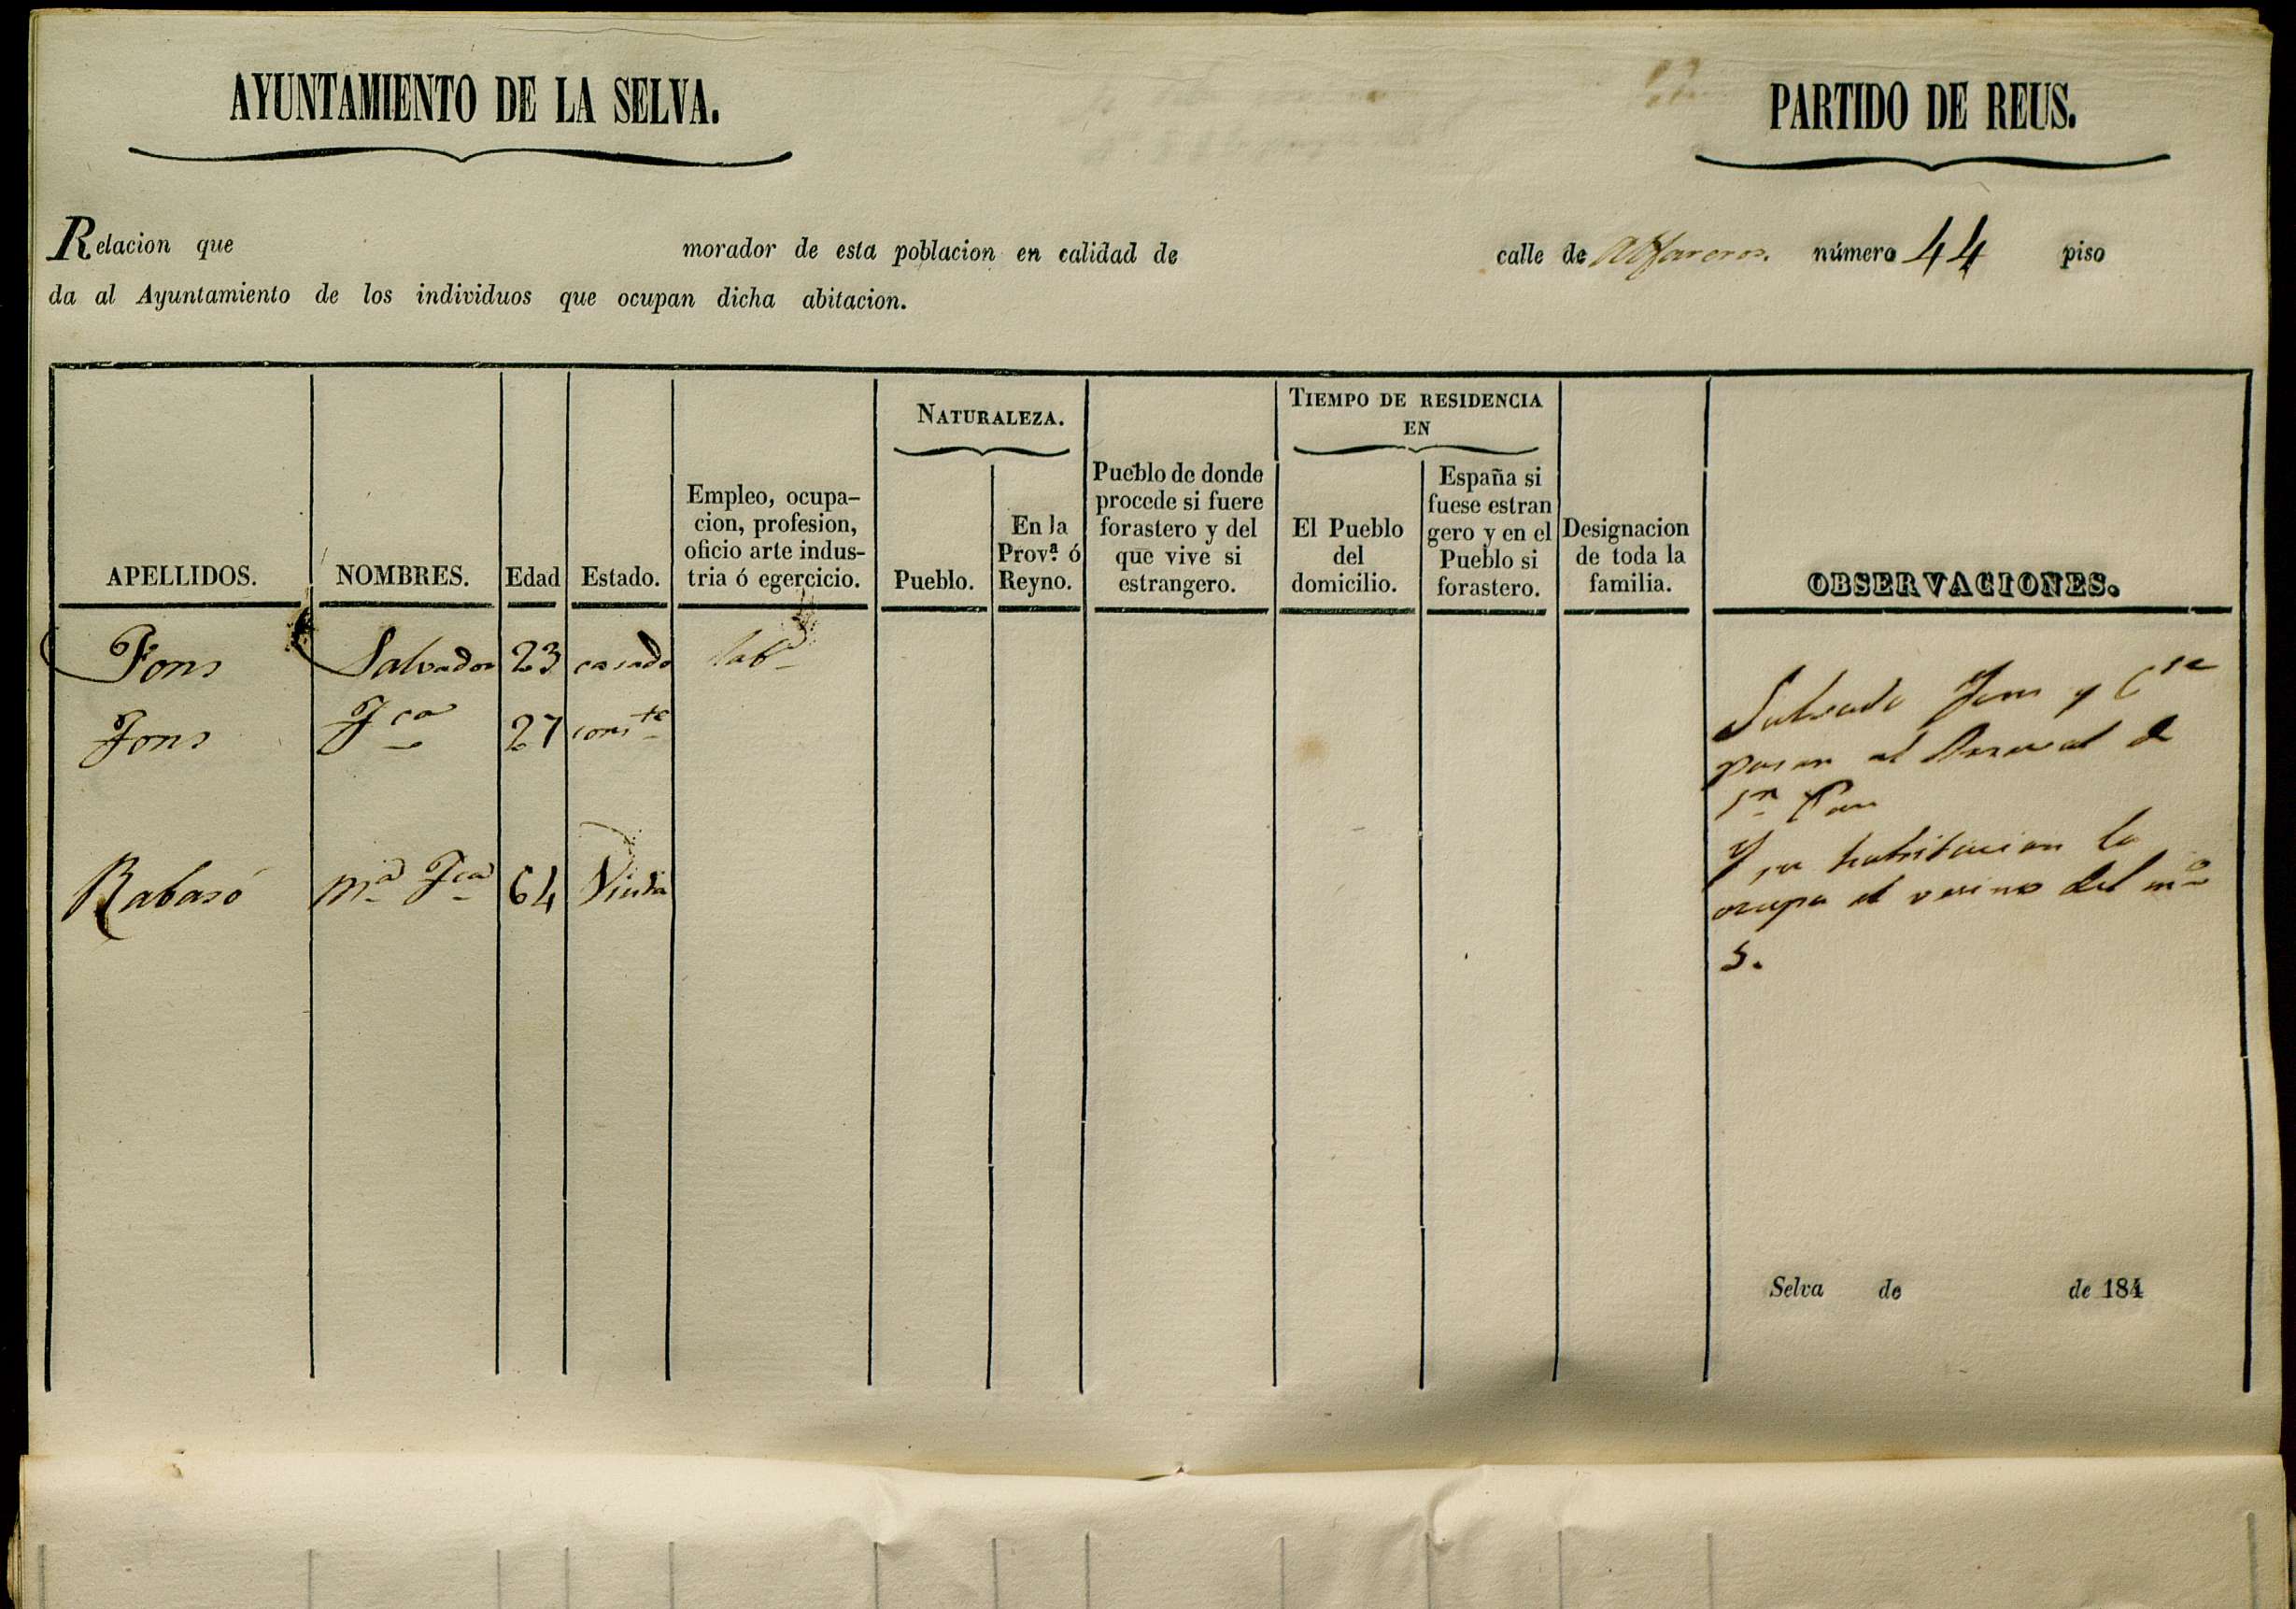 AYUNTAMIENTO DE LA SELVA.
PARTIDO DE REUS.
Relacion que morador de esta poblacion en calidad de calle de Alfareros. número 44 piso
da al Ayuntamiento de los individuos que ocupan dicha abitacion.
APELLIDOS.
NOMBRES.
Edad
Estado.
Empleo, ocupa-
cion, profesion,
oficio arte indus-
tria ó egercicio.
NATURALEZA.
Pueblo.
En la
Prov.ª ó
Reyno.
Pueblo de donde
procede si fuere
forastero y del
que vive si
estrangero.
TIEMPO DE RESIDENCIA
EN
El Pueblo
del
domicilio.
España si
fuese estran
gero y en el
Pueblo si
forastero.
Designacion
de toda la
familia.
OBSERVACIONES.
Fons Salvador 23 casado lab.r
Fons Fca 27 conste
Rabasó M.a Fca 64 Viuda
Salvado Fons y
pasan al Arraval de
Sn Pau
Y su habitacion la
ocupa el vesino del no
5.
Selva de de 184